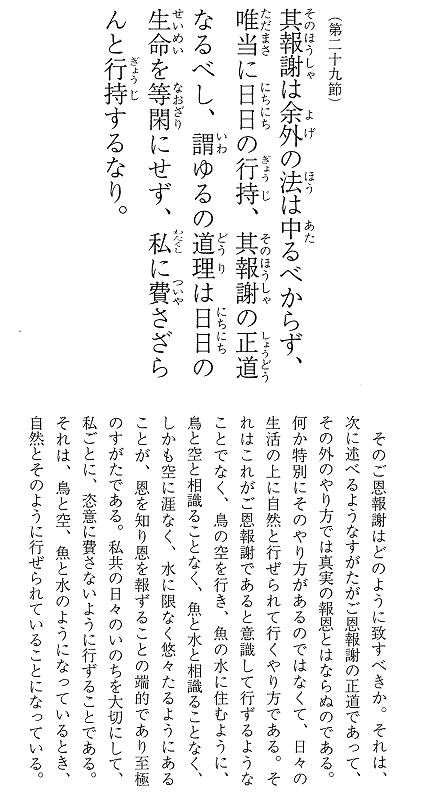 （第二十九節）
其報謝は余外の法は中るべからず、
唯当に日日の行持、其報謝の正道
なるべし、謂ゆるの道理は日日の
生命を等閑にせず、私に費さざら
んと行持するなり。
そのご恩報謝はどのように致すべきか。それは、
次に述べるようなすがたがご恩報謝の正道であって、
その外のやり方では真実の報恩とはならぬのである。
何か特別にそのやり方があるのではなくて、日々の
生活の上に自然と行ぜられて行くやり方である。そ
れはこれがご恩報謝であると意識して行ずるような
ことでなく、鳥の空を行き、魚の水に住むように、
鳥と空と相識ることなく、魚と水と相識ることなく、
しかも空に涯なく、水に限なく悠々たるようにある
ことが、恩を知り恩を報ずることの端的であり至極
のすがたである。私共の日々のいのちを大切にして、
私ごとに、恣意に費さないように行ずることである。
それは、鳥と空、魚と水のようになっているとき、
自然とそのように行ぜられていることになっている。